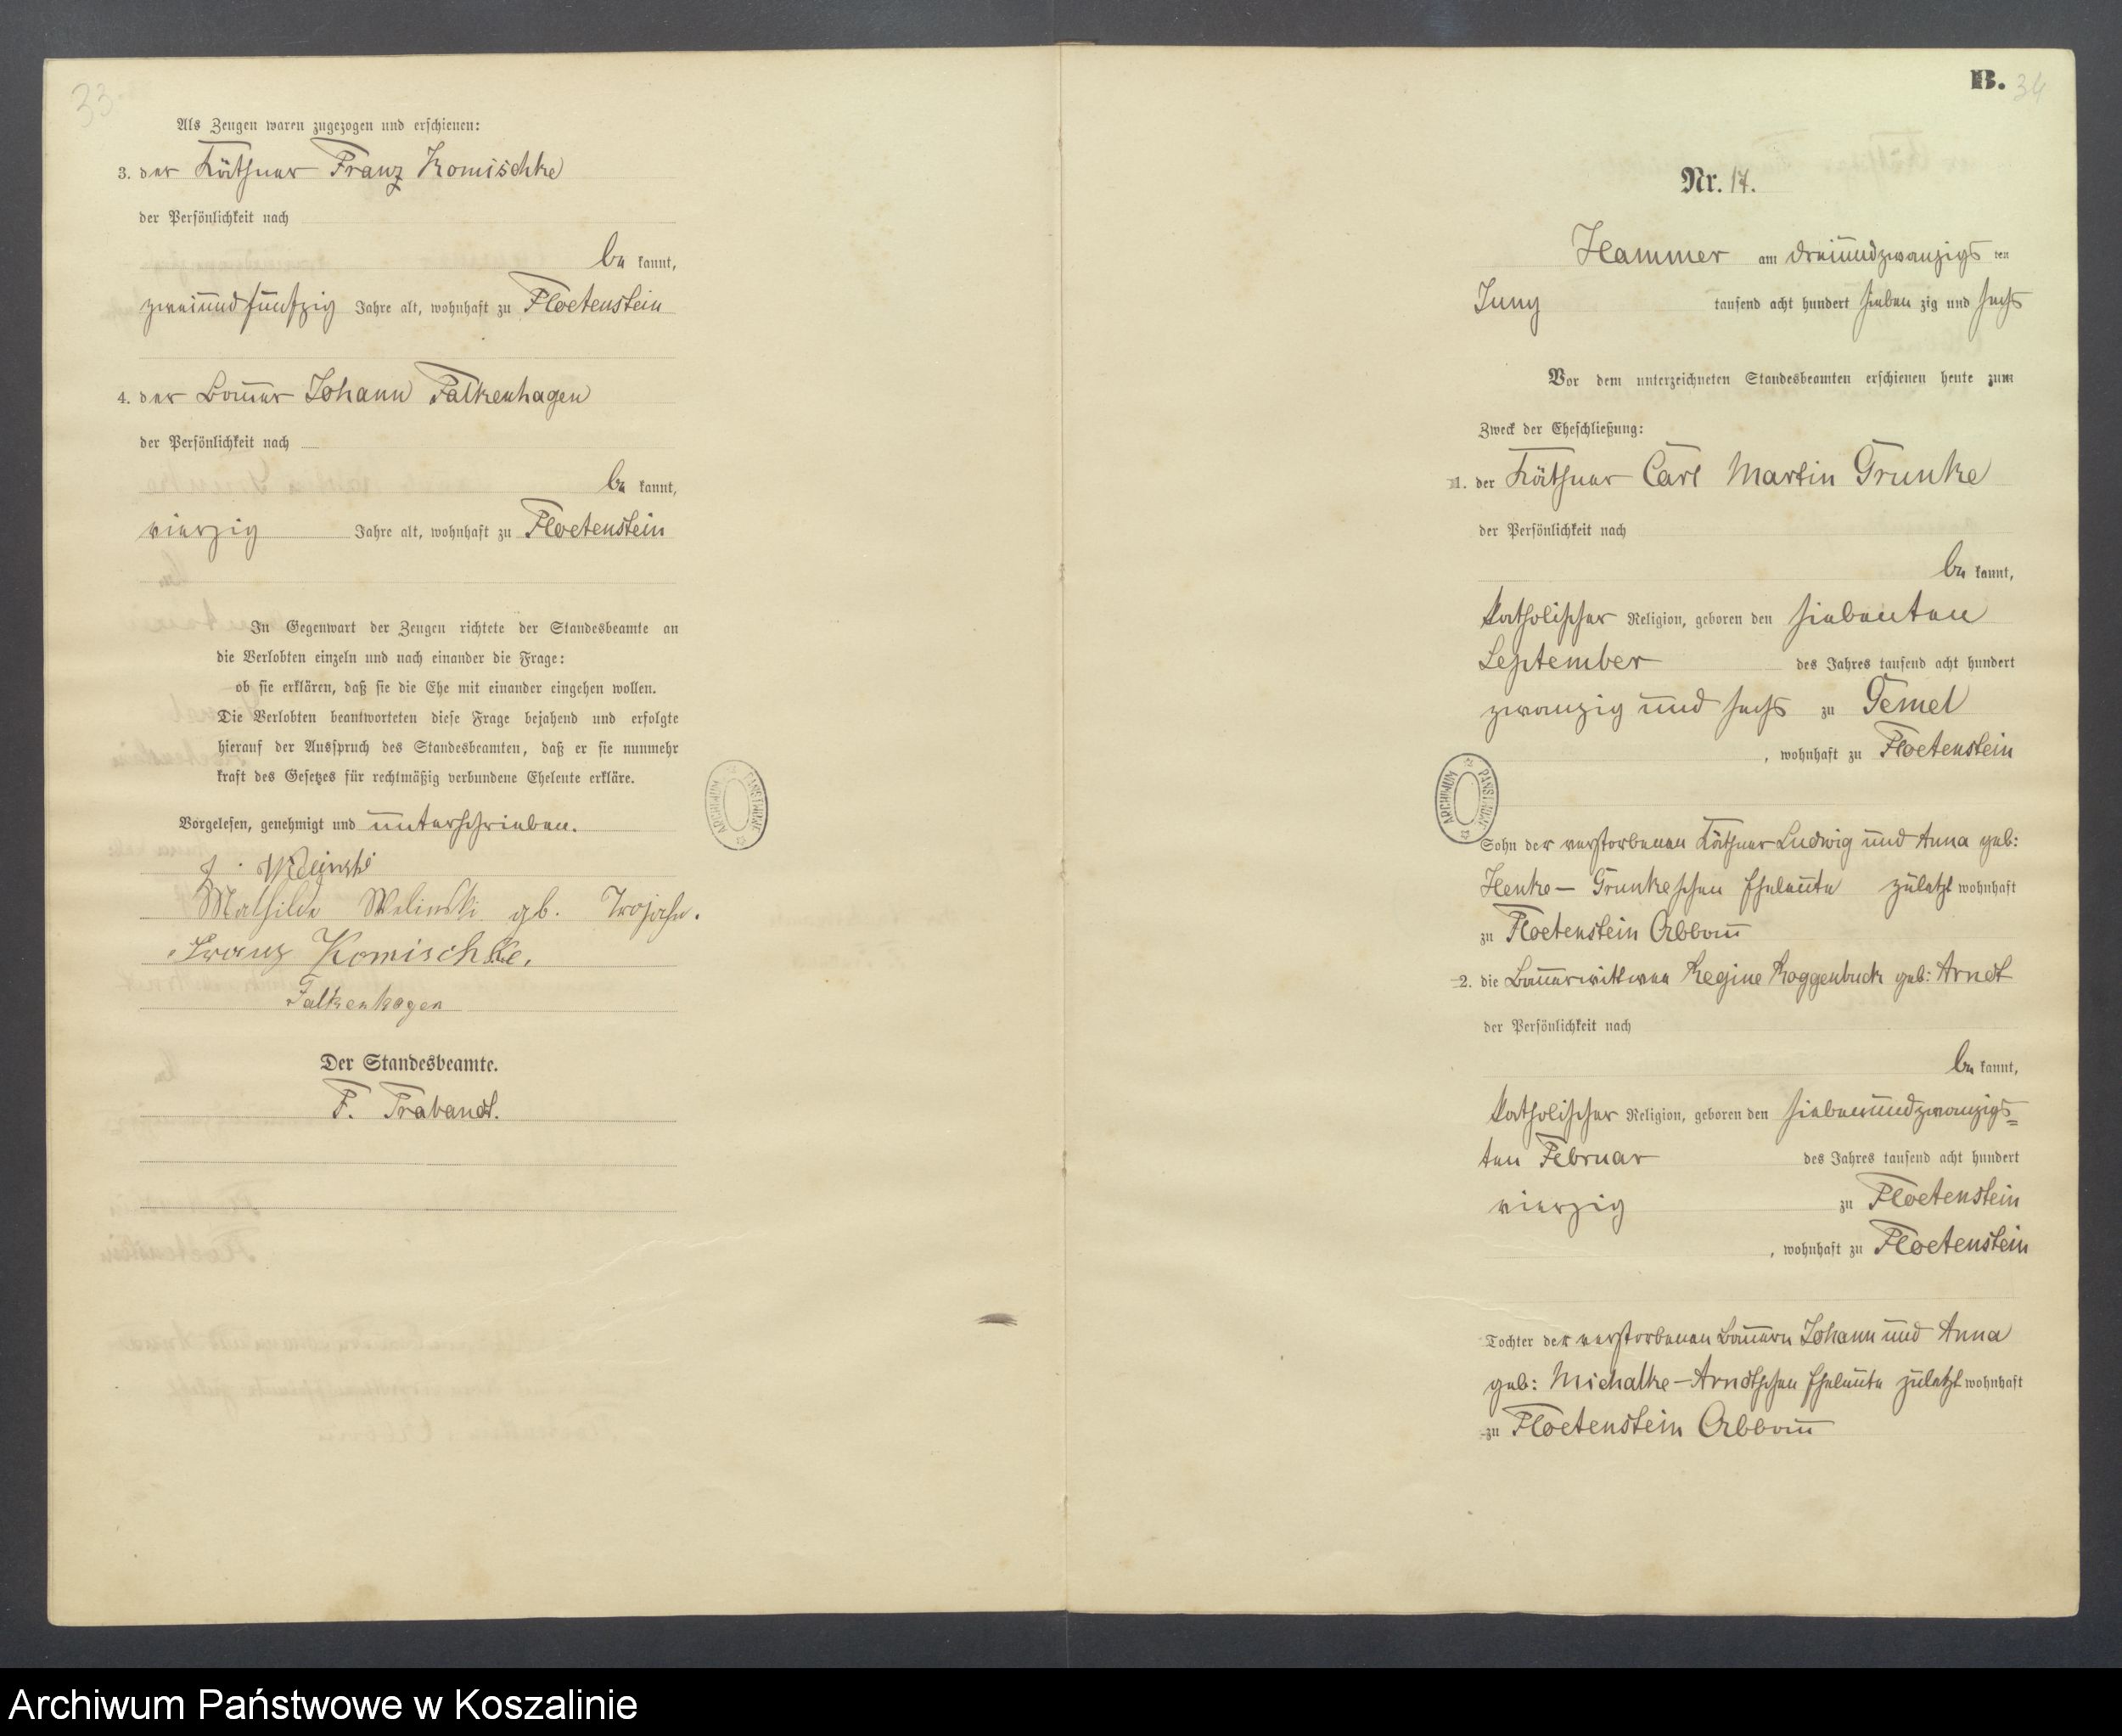 33.
Als Zeugen waren zugezogen und erschienen:
3. der Käthner Franz Komischke
der Persönlichkeit nach
be kannt,
zweiundfünfzig Jahre alt, wohnhaft zu Floetenstein
4. der Bauer Johann Falkenhagen
der Persönlichkeit nach
be kannt,
vierzig Jahre alt, wohnhaft zu Floetenstein
In Gegenwart der Zeugen richtete der Standesbeamte an
die Verlobten einzeln und nach einander die Frage:
ob sie erklären, daß sie die Ehe mit einander eingehen wollen.
Die Verlobten beantworteten diese Frage bejahend und erfolgte
hierauf der Ausspruch des Standesbeamten, daß er sie nunmehr
kraft des Gesetzes für rechtmäßig verbundene Eheleute erkläre.
Vorgelesen, genehmigt und unterschrieben.
Mathilde Welinski gb. Trojahn.
Franz Komischke.
Falkenhagen
Der Standesbeamte.
F. Trabandt.
ARCHIWUM PAŃSTWOWE
B. 34
Nr. 17.
Hammer am dreiundzwanzigs ten
Juny tausend acht hundert sieben zig und sechs
Vor dem unterzeichneten Standesbeamten erschienen heute zum
Zweck der Eheschließung:
1. der Käthner Carl Martin Grunke
der Persönlichkeit nach
be kannt,
katholischer Religion, geboren den siebenten
September des Jahres tausend acht hundert
zwanzig und sechs zu Gemel
, wohnhaft zu Floetenstein
ARCHIWUM PAŃSTWOWE
Sohn der verstorbenen Käthner Ludwig und Anna geb:
Henke – Grunkeschen Eheleute zuletzt wohnhaft
zu Floetenstein Abbau
2. die Bauerwittwee Regine Roggenbuck geb: Arndt
der Persönlichkeit nach
be kannt,
katholischer Religion, geboren den siebenundzwanzigs=
ten Februar des Jahres tausend acht hundert
vierzig zu Floetenstein
, wohnhaft zu Floetenstein
Tochter der verstorbenen Bauern Johann und Anna
geb: Michalke – Arndtschen Eheleute zuletzt wohnhaft
zu Floetenstein Abbau
Archiwum Państwowe w Koszalinie